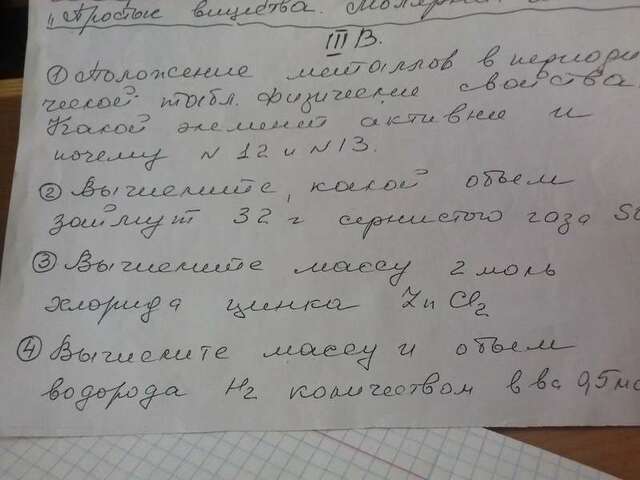 "Простые вещества. Молярный
III В.
① Положение металлов в периоди
ческой табл. Физические свойства.
Какой элемент активнее и
почему N 12 и N 13.
② Вычислите, какой объем
займут 32 г сернистого газа
③ Вычислите массу 2 моль
хлорида цинка ZnCl₂
④ Вычислите массу и объем
водорода H₂ количеством в ва 0,5 мо